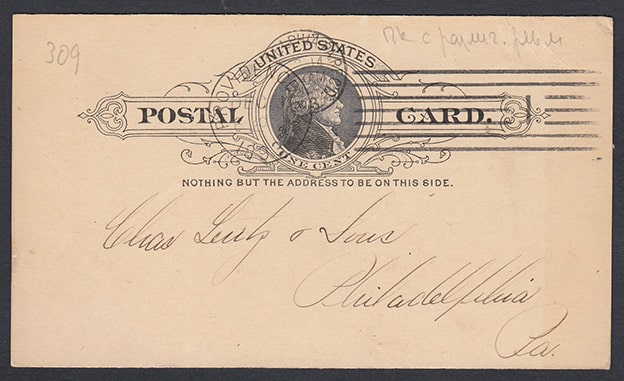 309
UNITED STATES
POSTAL CARD.
ONE CENT
NOTHING BUT THE ADDRESS TO BE ON THIS SIDE.
Chas & Sons
Philadelphia
Pa.